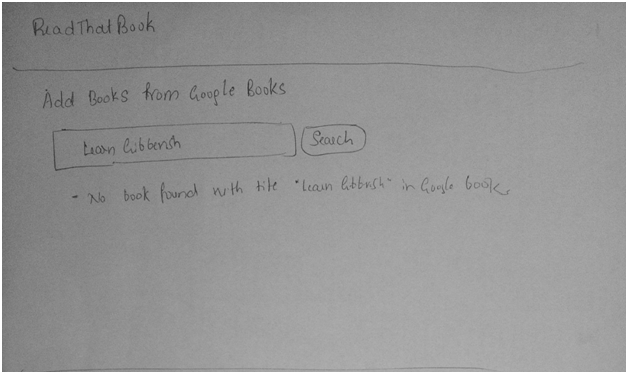 ReadThatBook
Add Books from Google Books
Learn Gibberish
Search
- No book found with title "Learn Gibbrish" in Google books